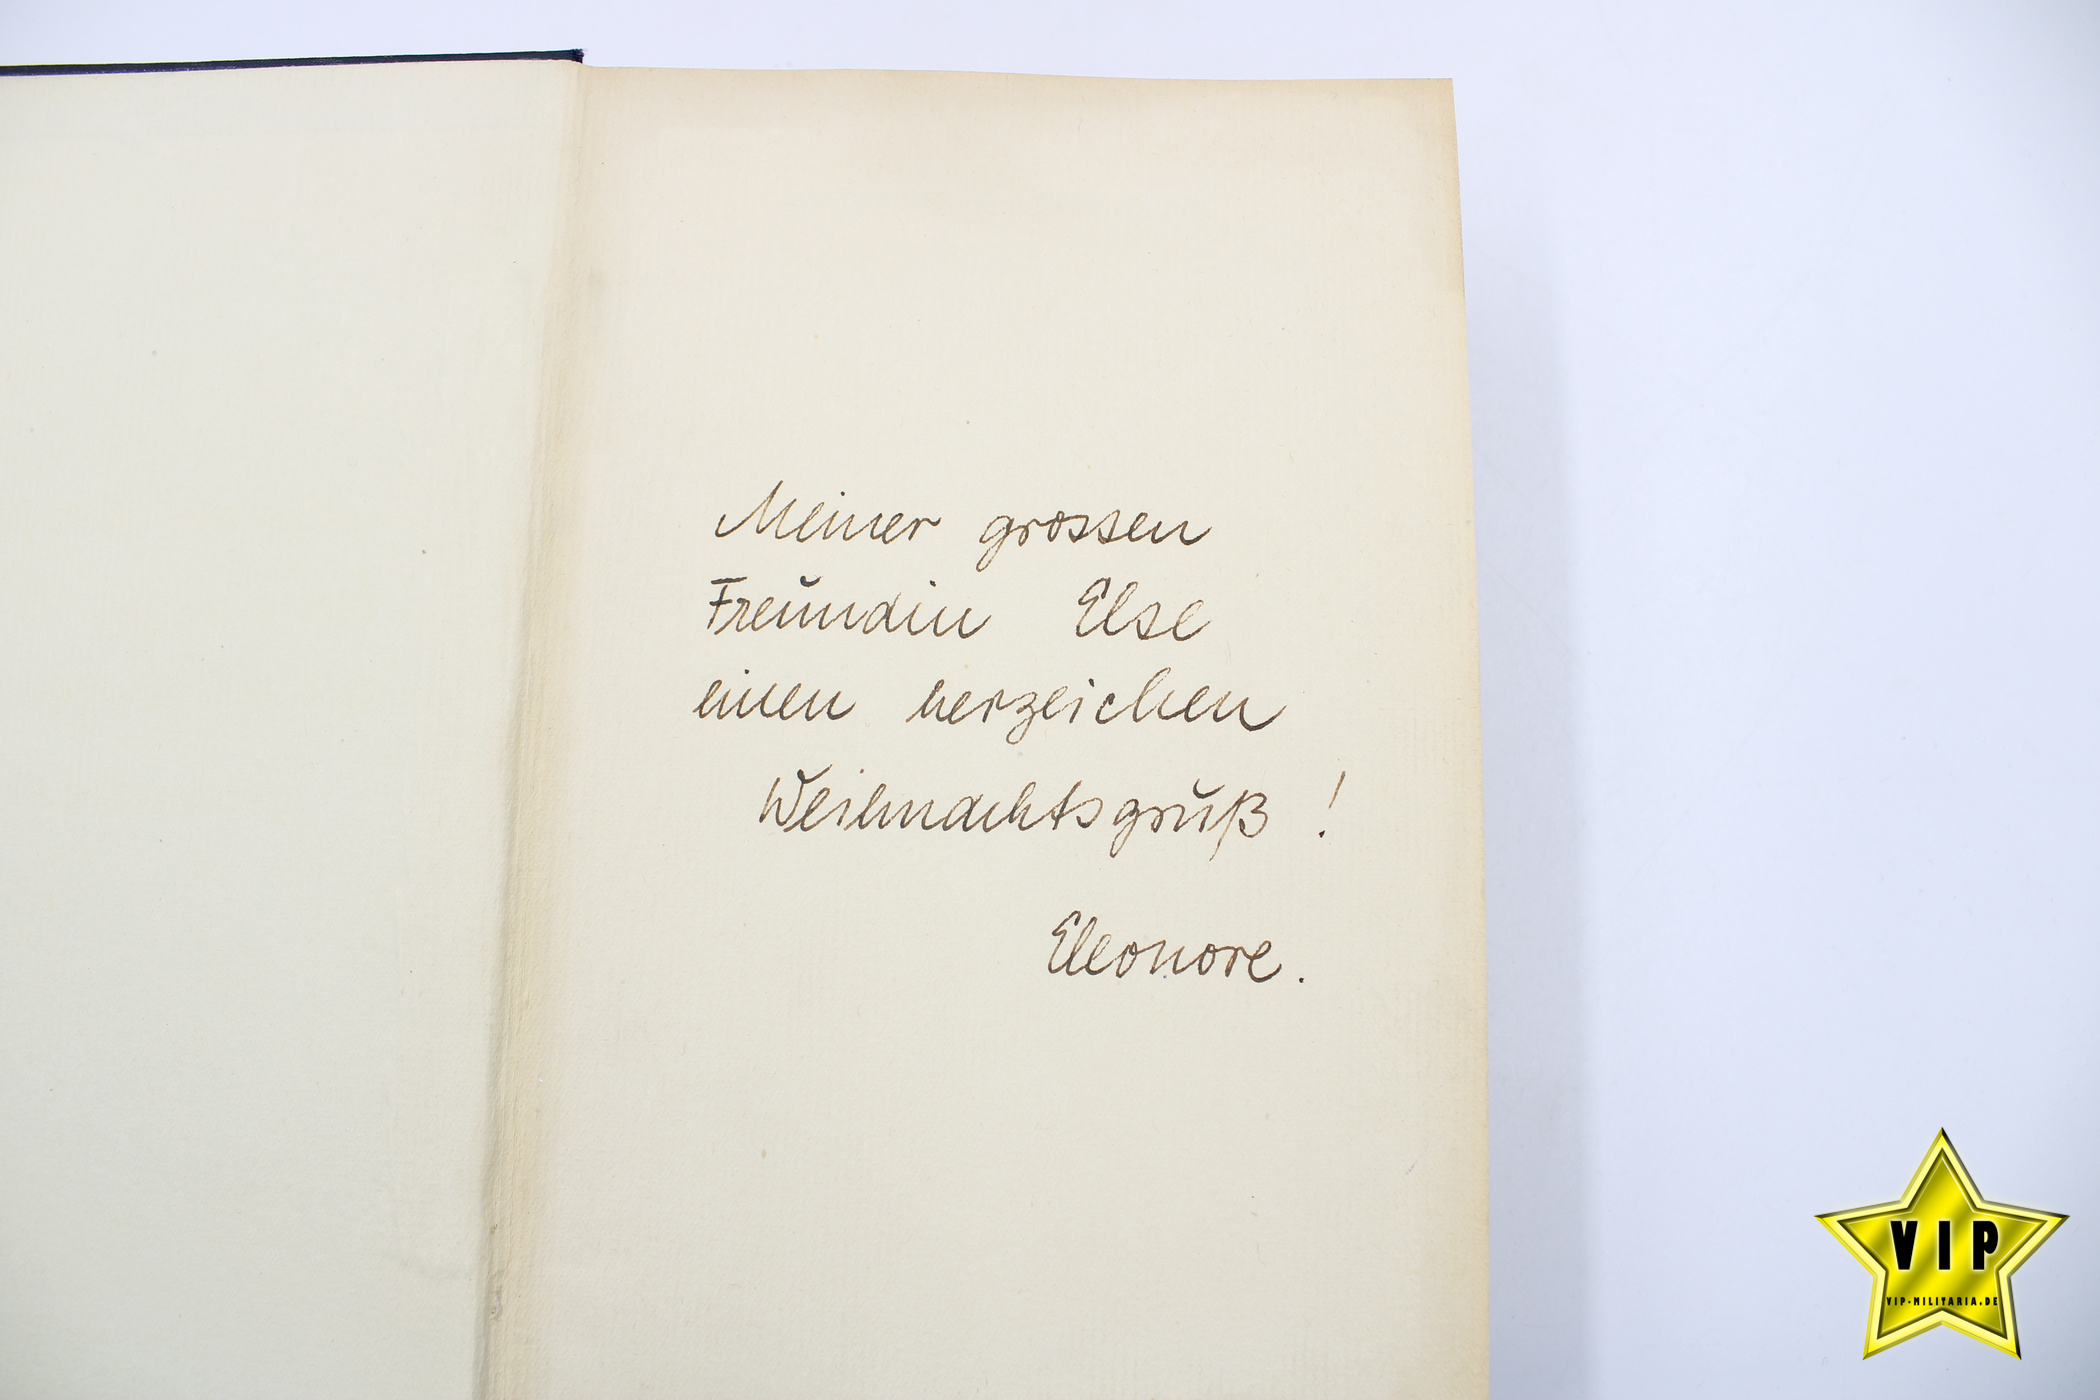 Meiner grossen
Freundin Else
einen herzeichen
Weihnachtsgruß !
Eleonore.
VIP
VIP-MILITARIA.DE